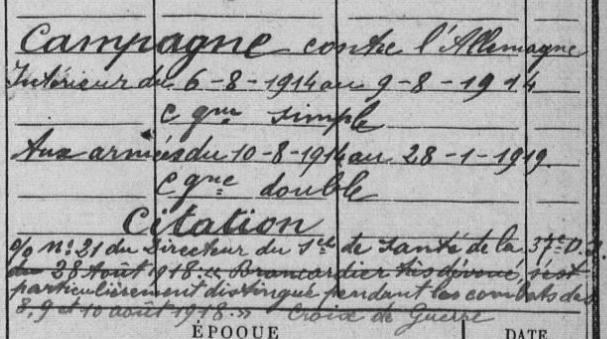 Campagne contre l'Allemagne
Intérieur du 6-8-1914 au 9-8-1914
Cgne simple
Aux armées du 10-8-1914 au 28-1-1919
Cgne double
Citation
o/o n° 21 du Directeur du Sce de Santé de la 37e D.I.
du 28 Août 1918 : « Brancardier très dévoué, s'est
particulièrement distingué pendant les combats des
8, 9 et 10 août 1918. » Croix de Guerre
ÉPOQUE DATE